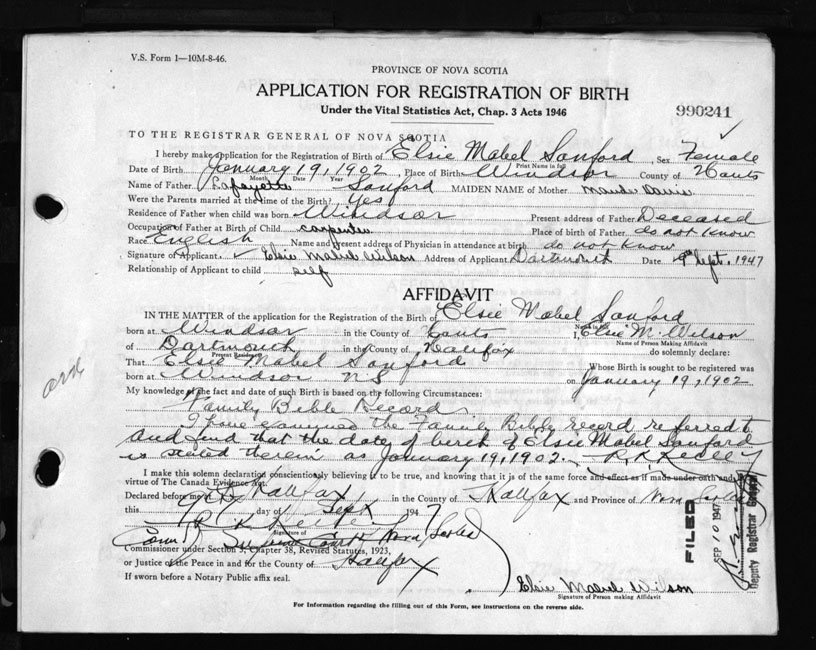 V.S. Form 1—10M-8-46.
PROVINCE OF NOVA SCOTIA
APPLICATION FOR REGISTRATION OF BIRTH
Under the Vital Statistics Act, Chap. 3 Acts 1946
990241
TO THE REGISTRAR GENERAL OF NOVA SCOTIA
I hereby make application for the Registration of Birth of Elsie Mabel Sanford, Sex Female
Print Name in full
Date of Birth January 19, 1902, Place of Birth Windsor County of Hants
Month Date Year
Name of Father Lafayette Sanford MAIDEN NAME of Mother Maude Davis
Were the Parents married at the time of the Birth? Yes
Residence of Father when child was born Windsor Present address of Father Deceased
Occupation of Father at Birth of Child carpenter Place of birth of Father do not know
Race English Name and present address of Physician in attendance at birth do not know
Signature of Applicant Elsie Mabel Wilson Address of Applicant Dartmouth Date 9th Sept. 1947
Relationship of Applicant to child self
AFFIDAVIT
IN THE MATTER of the application for the Registration of the Birth of Elsie Mabel Sanford
Name in full
born at Windsor in the County of Hants I, Elsie M. Wilson
Name of Person Making Affidavit
of Dartmouth in the County of Halifax do solemnly declare:
Present Residence
That Elsie Mabel Sanford Whose Birth is sought to be registered was
born at Windsor NS on January 19, 1902
My knowledge of the fact and date of such Birth is based on the following Circumstances:
Family Bible Records.
I have examined the Family Bible record referred to
and find that the date of birth of Elsie Mabel Sanford
is stated therein as January 19, 1902.
I make this solemn declaration conscientiously believing it to be true, and knowing that it is of the same force and effect as if made under oath and by
virtue of The Canada Evidence Act.
Declared before me at Halifax in the County of Halifax and Province of Nova Scotia
this 9th day of Sept 1947
Signature of
Supreme Court Nova Scotia
Commissioner under Section 3, Chapter 38, Revised Statutes, 1923,
or Justice of the Peace in and for the County of Halifax
If sworn before a Notary Public affix seal.
Elsie Mabel Wilson
Signature of Person making Affidavit
For Information regarding the filling out of this Form, see instructions on the reverse side.
FILED
SEP 10 1947
Deputy Registrar General